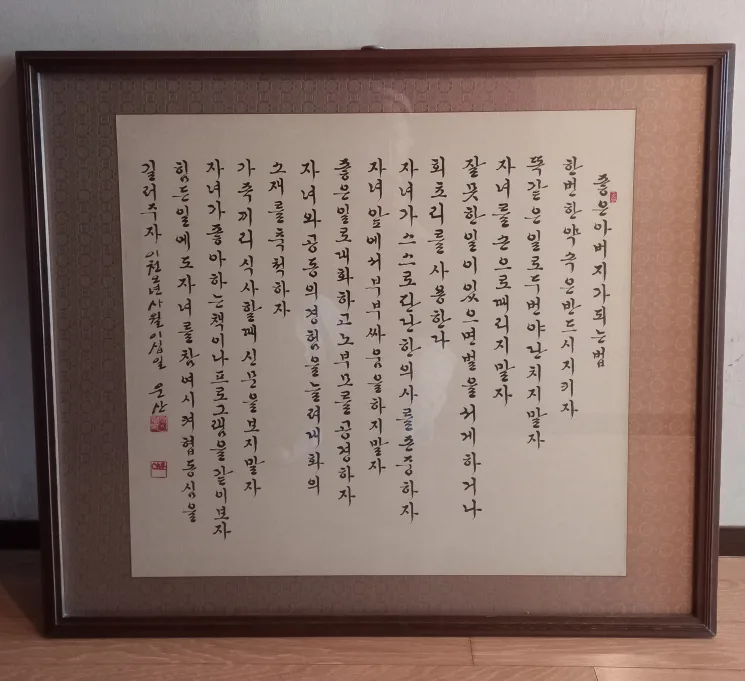 좋은아버지가되는법
한번한약속은반드시지키자
똑같은일로두번야단치지말자
자녀를손으로때리지말자
잘못한일이있으면벌을서게하거나
회초리를사용한다
자녀가스스로판단한의사를존중하자
자녀앞에서부부싸움을하지말자
좋은일로대화하고노부모를공경하자
자녀와공동의경험을늘려대화의
소재를축척하자
가족끼리식사할때신문을보지말자
자녀가좋아하는책이나프로그램을같이보자
힘든일에도자녀를참여시켜협동심을
길러주자 사월이십일 운산